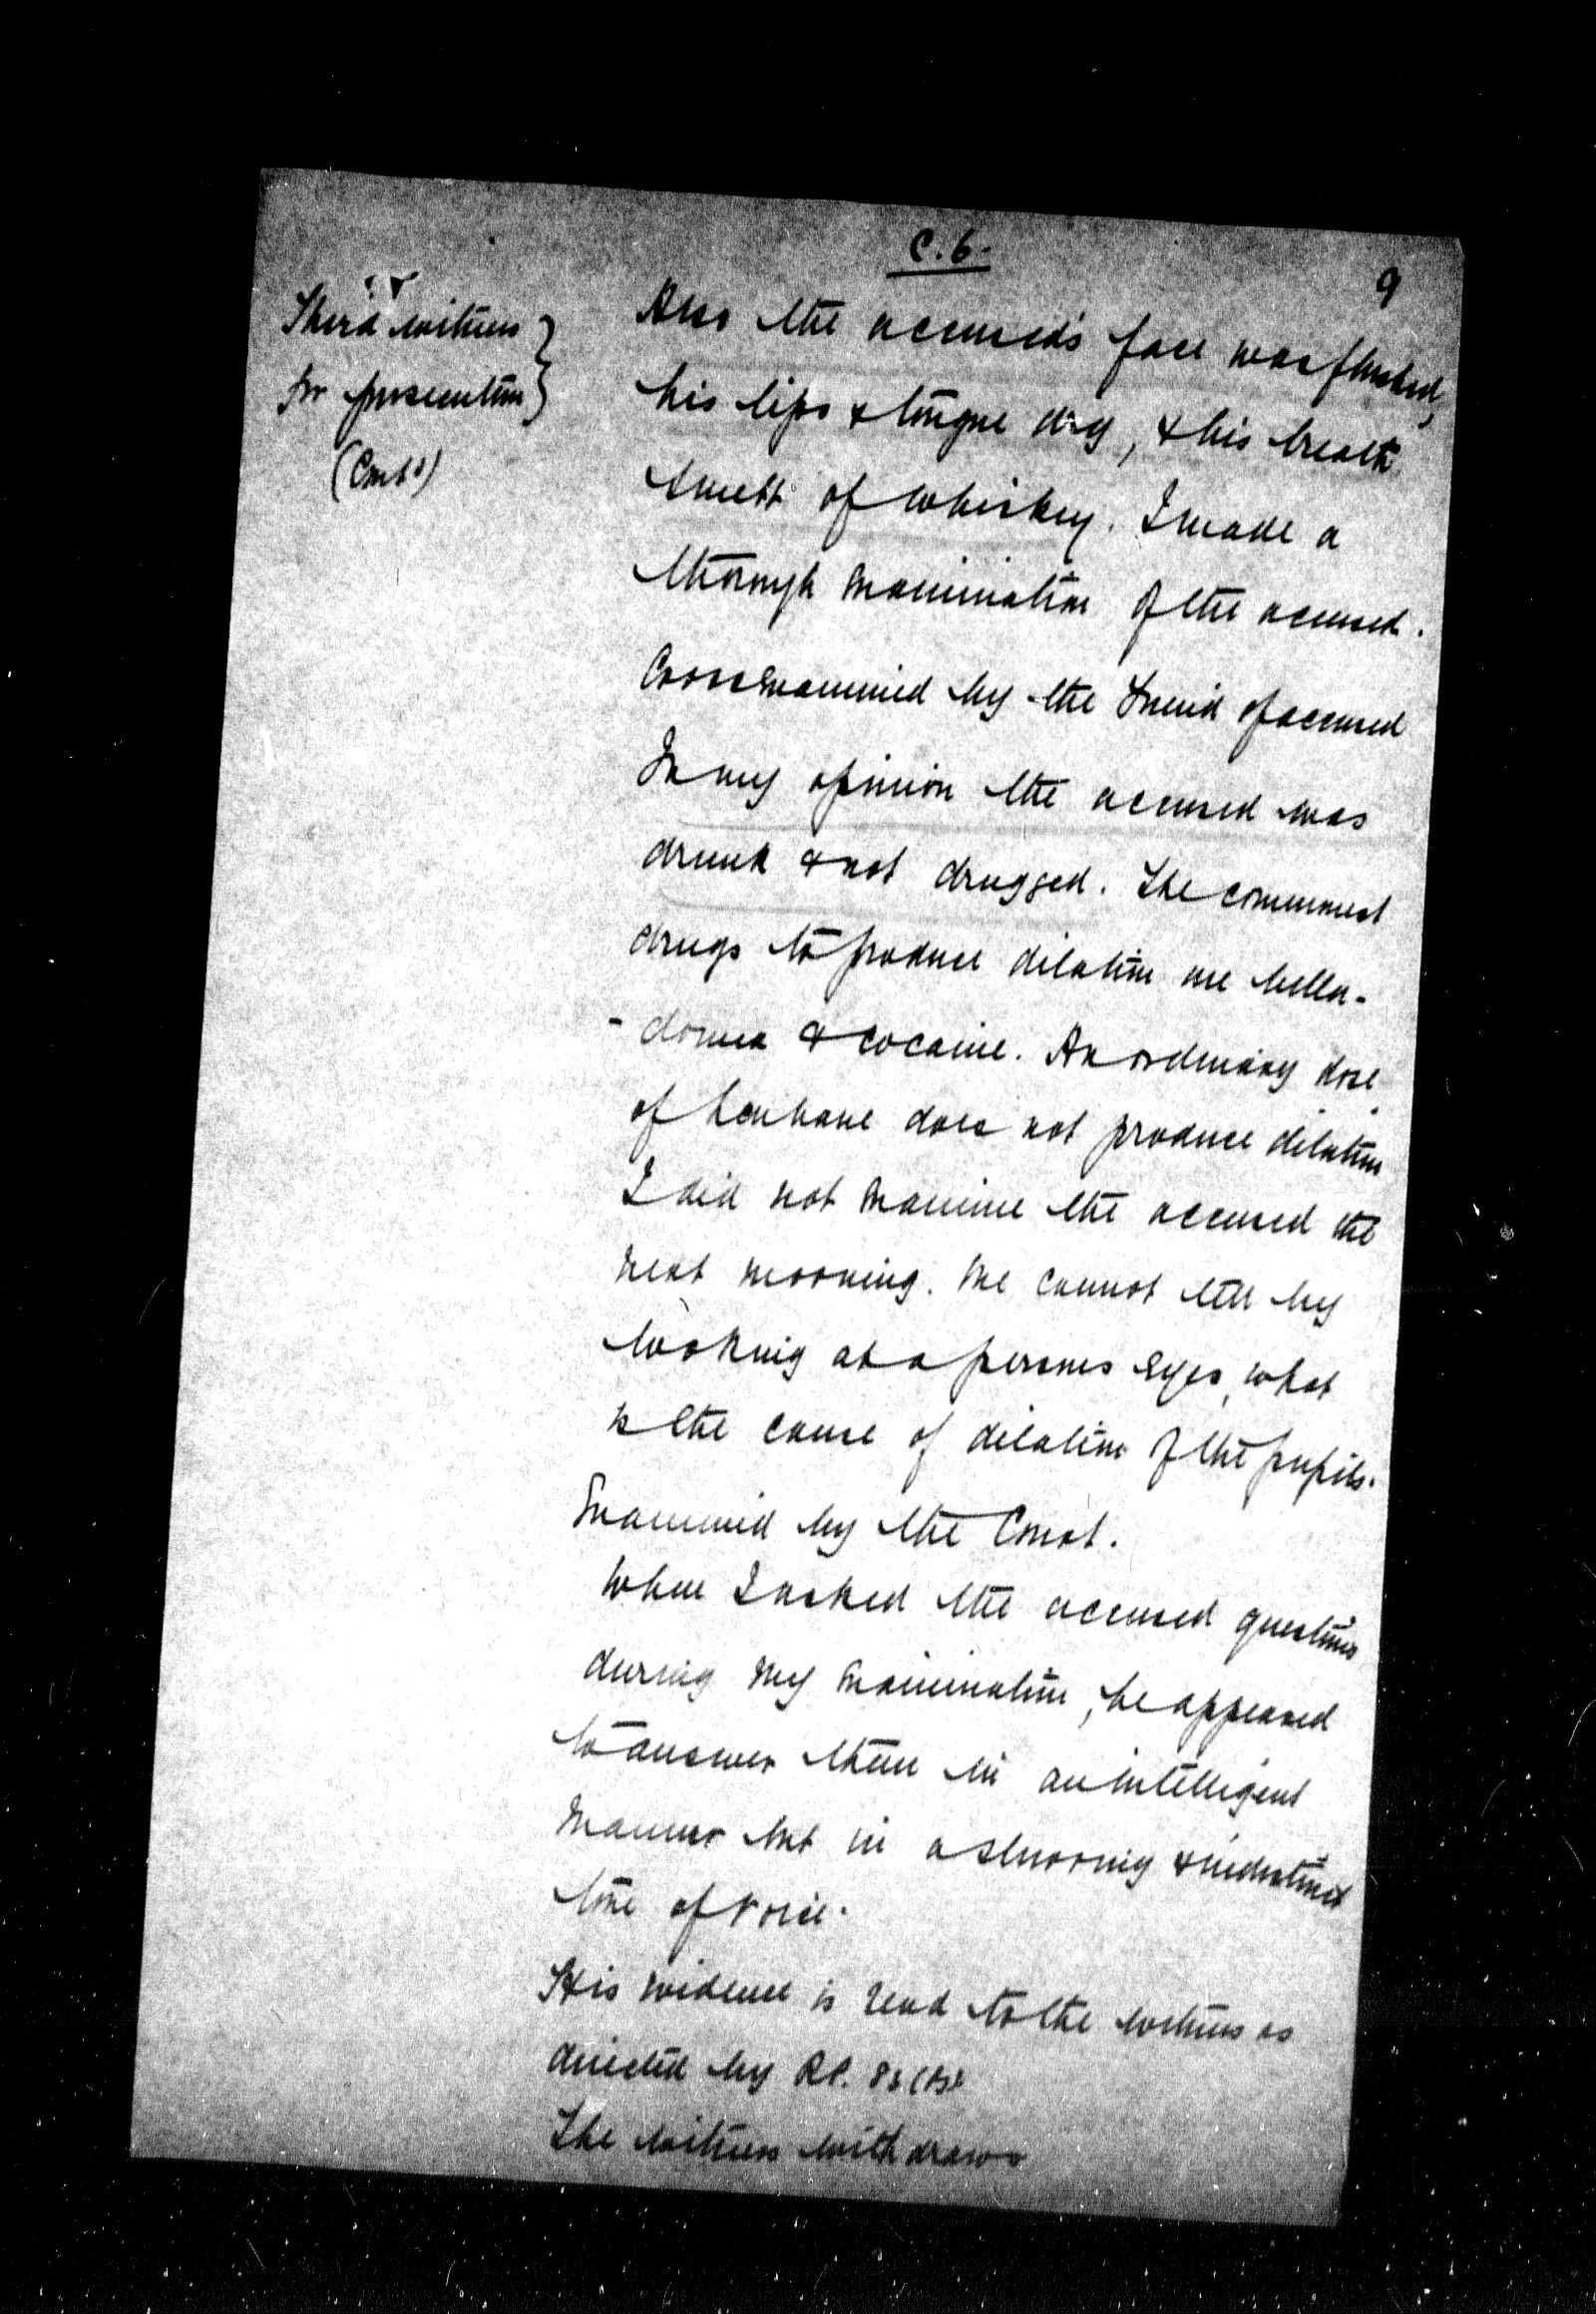 C.6.
9
Third witness
for prosecution
(Contd)
Also the accused's face was flushed,
his lips & tongue dry, & his breath
smelt of whiskey. I made a
thorough examination of the accused.
Cross examined by the friend of accused
In my opinion the accused was
drunk & not drugged. The commonest
drugs to produce dilation are bella-
-donna & cocaine. An ordinary dose
of henbane does not produce dilation
I did not examine the accused the
next morning. One cannot tell by
looking at a persons eyes, what
is the cause of dilation of the pupils.
Examined by the Court.
When I asked the accused questions
during my examination, he appeared
to answer them in an intelligent
manner but in a slurring & indistinct
tone of voice.
His evidence is read to the witness as
directed by R.P. 83 (B)
The witness withdraws